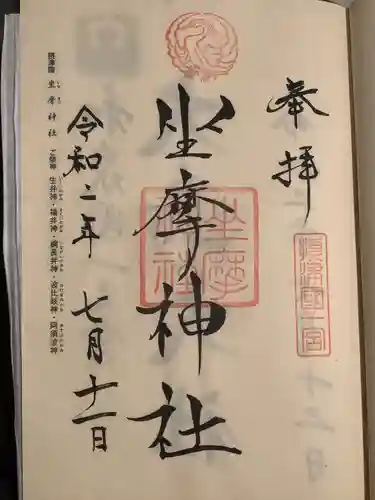 奉拝
摂津国一宮
坐摩神社
坐摩神社
令和二年 七月十一日
摂津國 坐摩神社 ご祭神 生井神・福井神・綱長井神・波比祇神・阿須波神